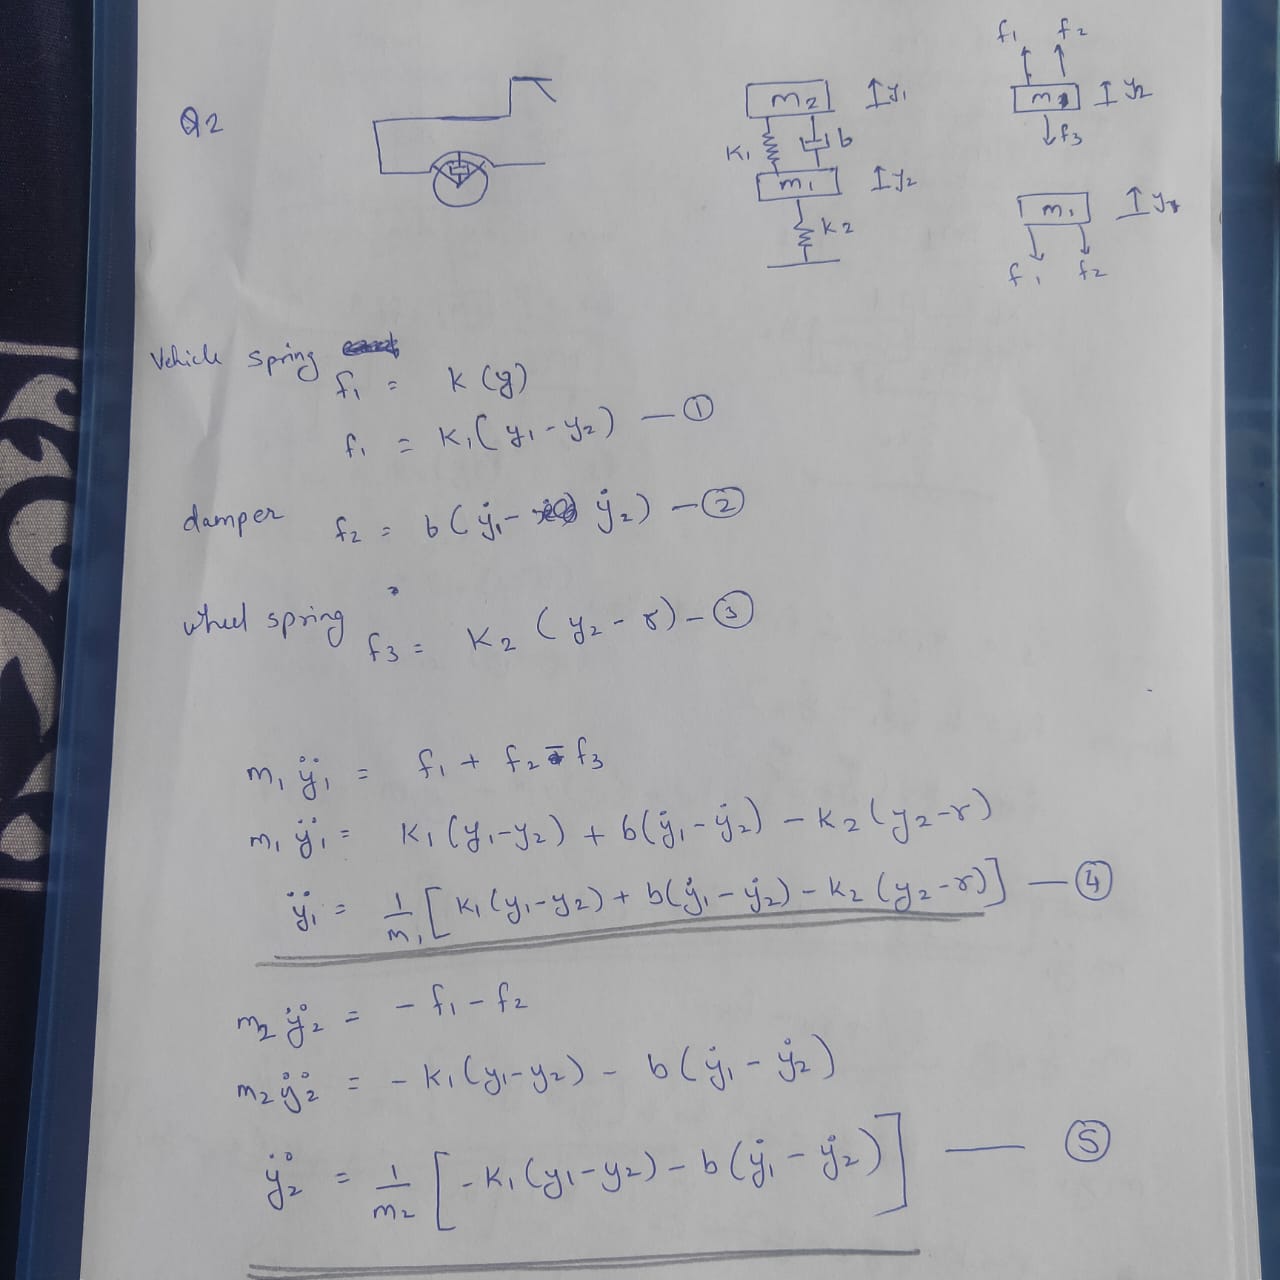 Q2
m2 ↑y1
K1 b
m1 ↑y2
K2
f1 f2
m ↑y2
↓f3
m1 ↑y
f1 f2
Vehicle spring
f1 = K (y)
f1 = K1( y1 - y2 ) — ①
damper f2 = b ( ẏ1 - ẏ2 ) — ②
wheel spring f3 = K2 ( y2 - r ) - ③
m1 ÿ1 = f1 + f2 - f3
m1 ÿ1 = K1 (y1-y2) + b(ẏ1-ẏ2) - K2(y2-r)
ÿ1 = 1/m1 [ K1(y1-y2) + b(ẏ1-ẏ2) - K2(y2-r)] — ④
m2 ÿ2 = - f1 - f2
m2 ÿ2 = - K1(y1-y2) - b(ẏ1 - ẏ2)
ÿ2 = 1/m2 [ -K1(y1-y2) - b(ẏ1 - ẏ2) ] — ⑤